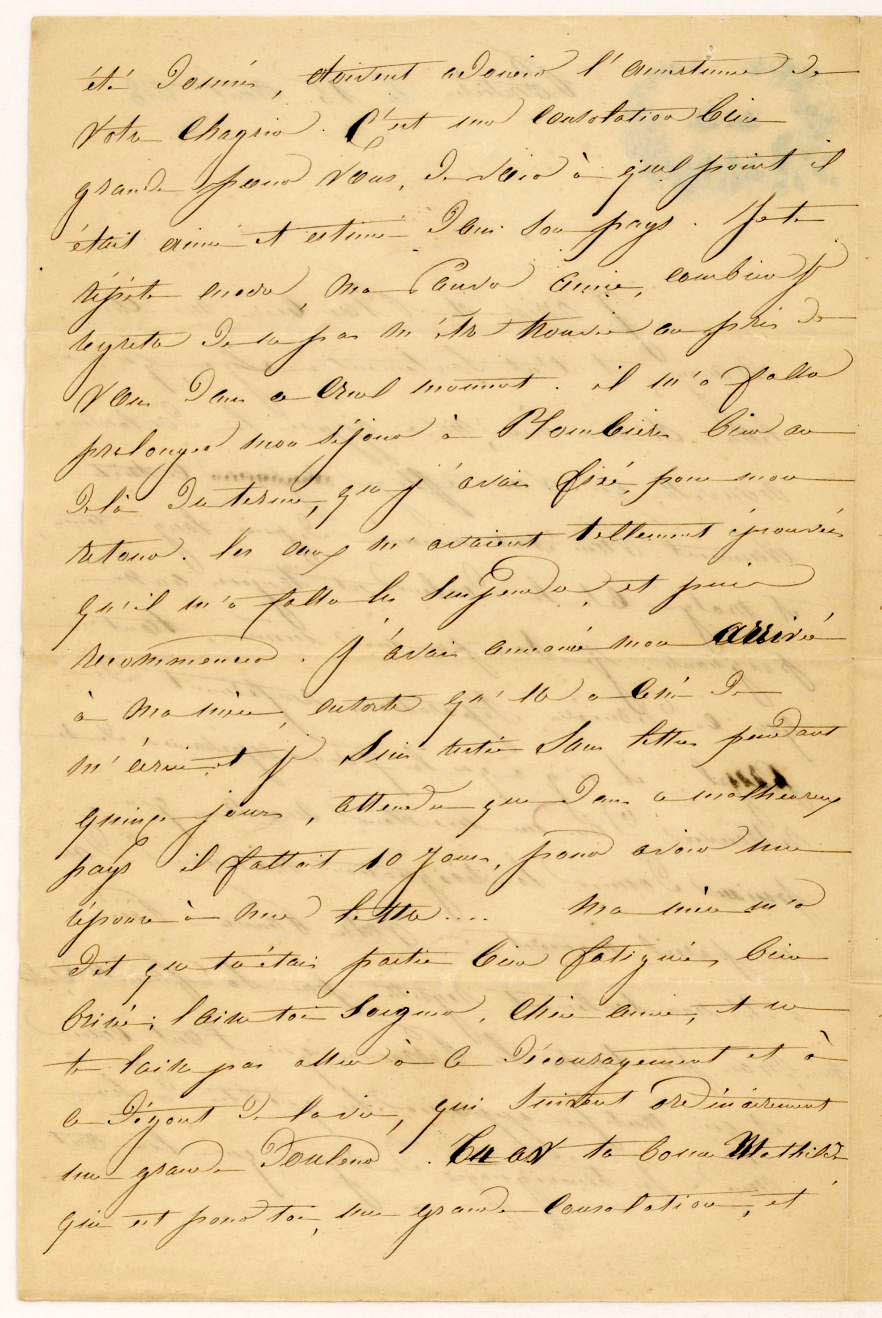 été donnés, doivent adoucir l'amertume de
votre chagrin. C'est une consolation bien
grande pour vous, de voir à quel point il
était aimé et estimé dans son pays. Je te
répète encore, ma pauvre amie, combien je
regrette de ne pas m'être trouvée au près de
vous dans ce cruel moment. il m'a fallu
prolonger mon séjour à Plombières bien au
delà du terme, que j'avais fixé, pour mon
retour. les eaux m'avaient tellement éprouvée
qu'il m'a fallu les suspendre, et puis
recommencer. J'avais annoncé mon arrivée
à ma mère, ensorte qu'elle a cessé de
m'écrire et je suis restée sans lettres pendant
quinze jours, attendu que dans ce malheureux
pays il fallait 10 jours, pour avoir une
réponse à une lettre.... Ma mère m'a
dit que tu étais partie bien fatiguée, bien
brisée; laisse toi soigner, chère amie, et ne
te laisse pas aller à ce découragement et à
ce dégout de la vie, qui suivent ordinairement
une grande douleur. Tu as ta bonne Mathilde
qui est pour toi, une grande consolation, et